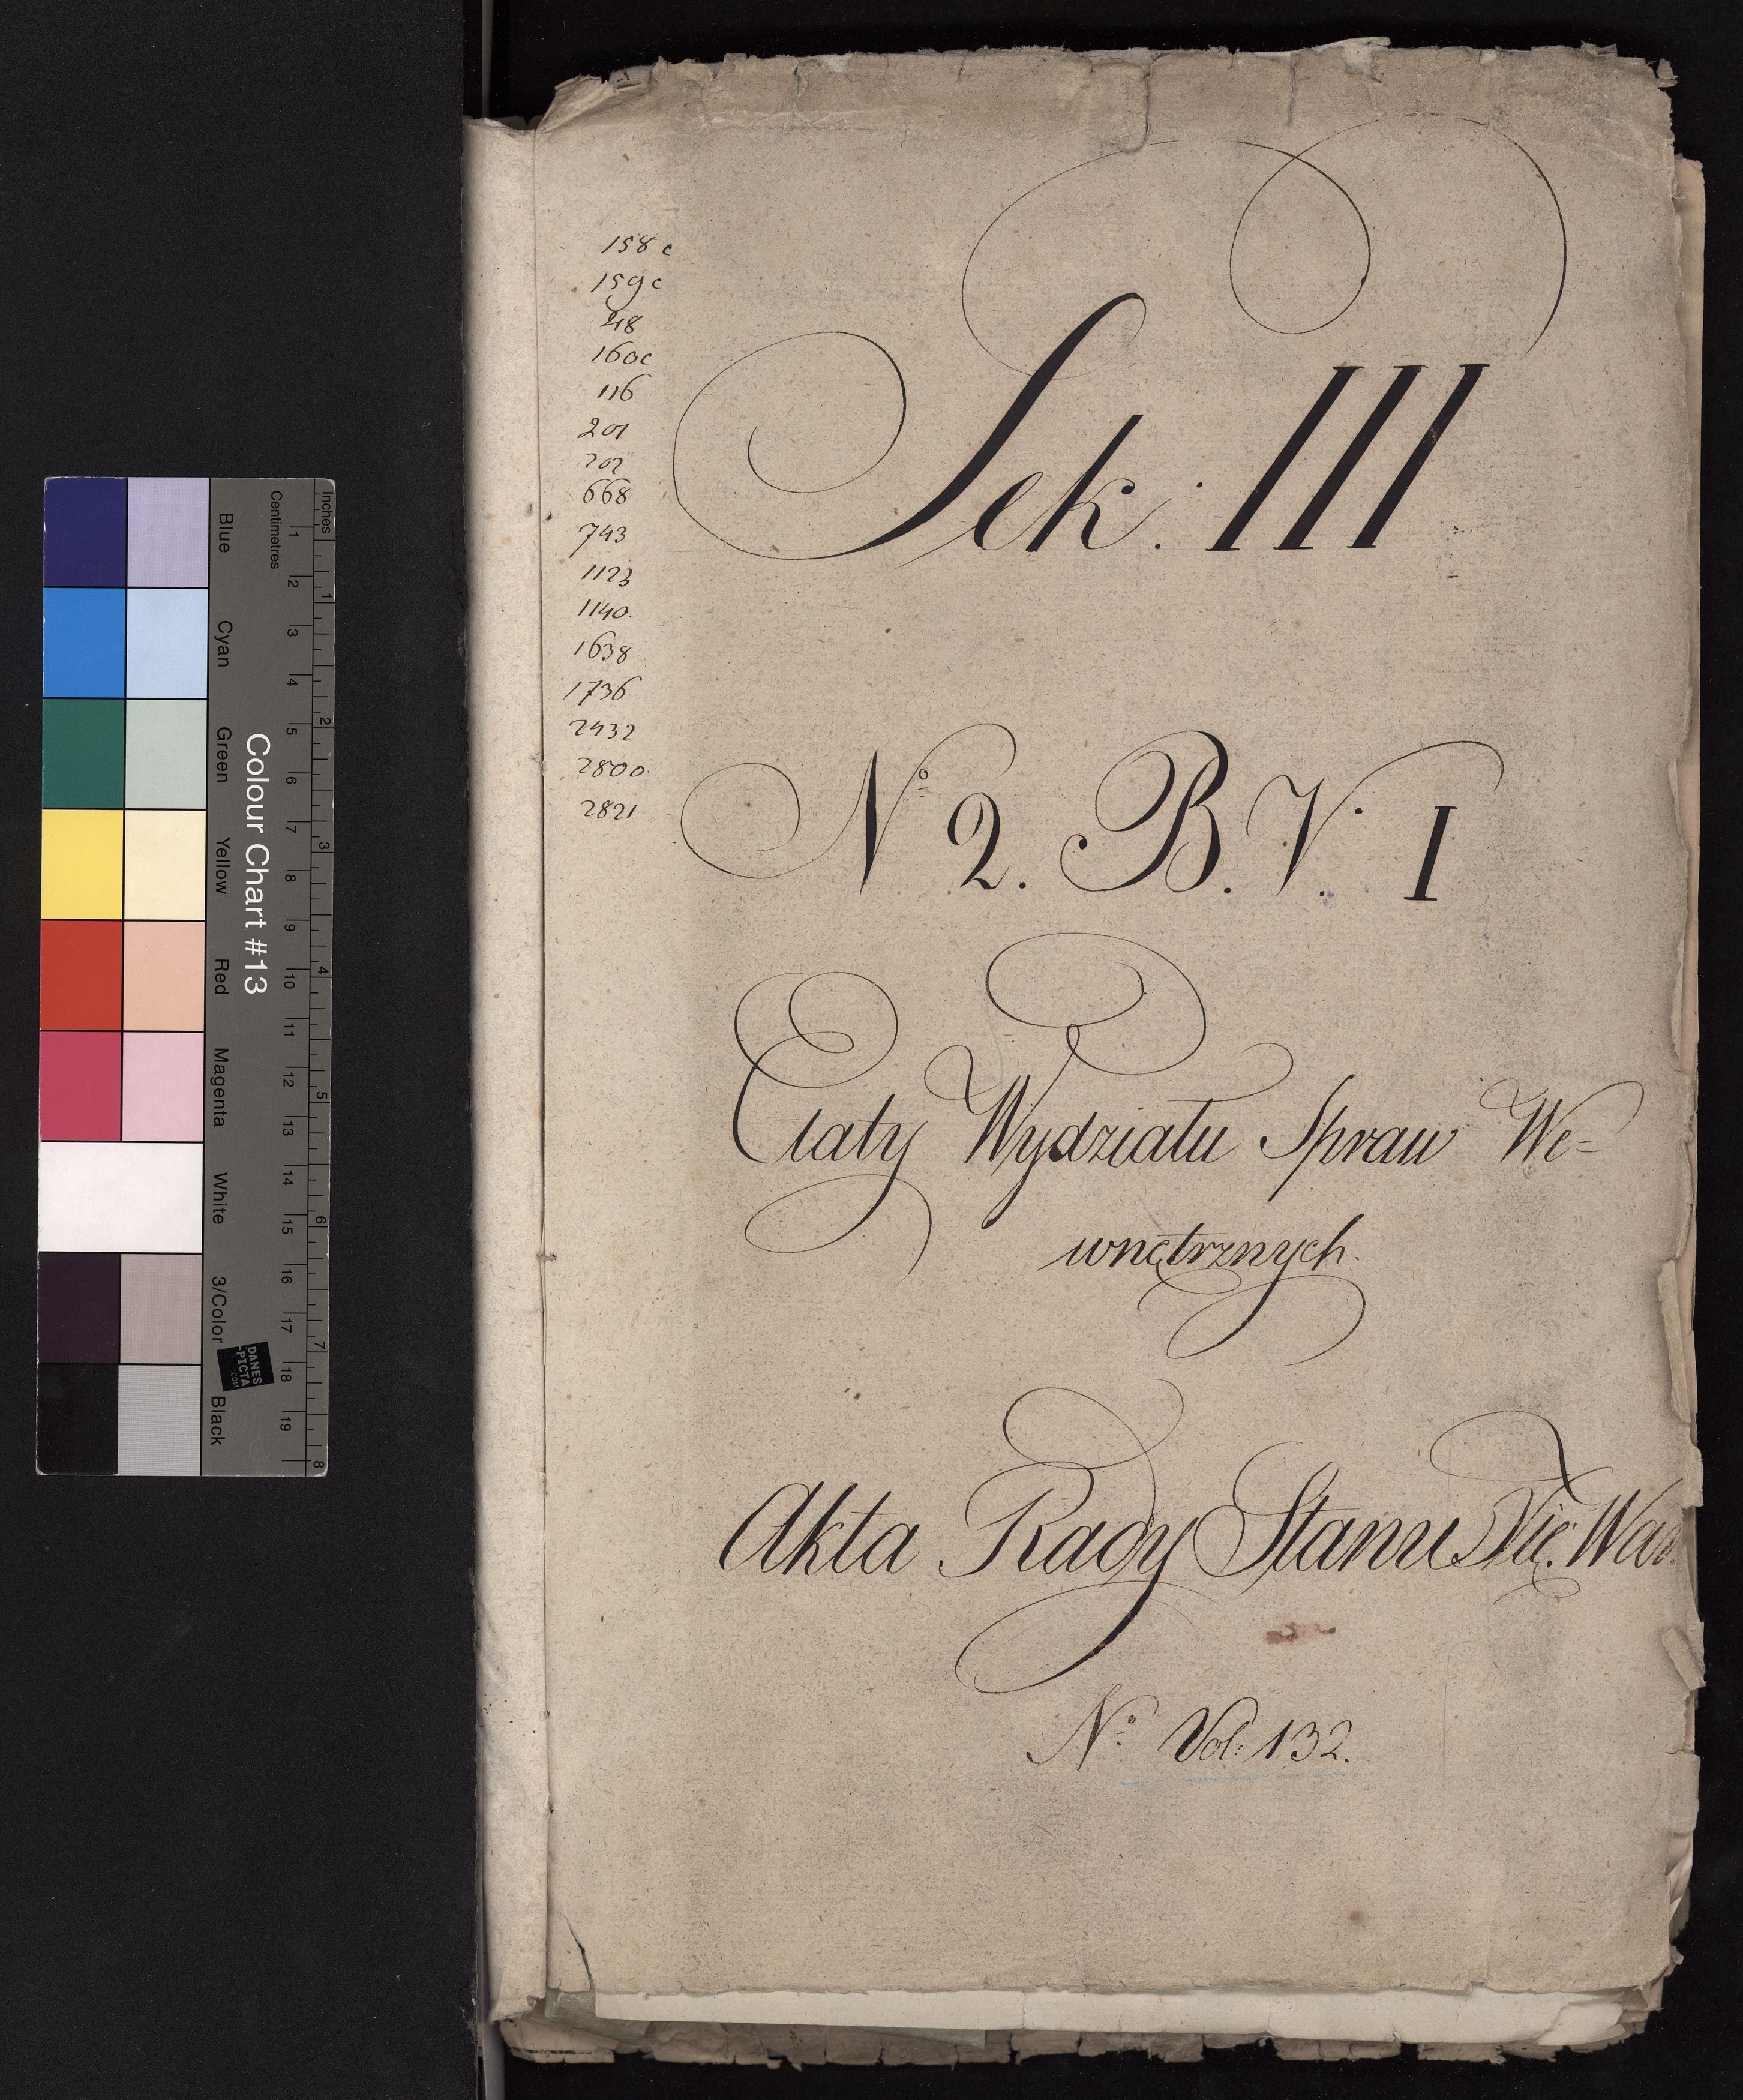 158 c
159 c
48
160c
116
201
202
668
743
1123
1140.
1638
1736
2432
2800
2821
Sek. III
Nº 2. B. V. I
Etaty Wydziału Spraw We=
wnętrznych.
Akta Rady Stanu Xię. War.
Nº Vol: 132.
Inches
Centimetres
1 2 3 4 5 6 7 8 9 10 11 12 13 14 15 16 17 18 19
1 2 3 4 5 6 7 8
Colour Chart #13
Blue
Cyan
Green
Yellow
Red
Magenta
White
3/Color
Black
DANES
-PICTA
.COM